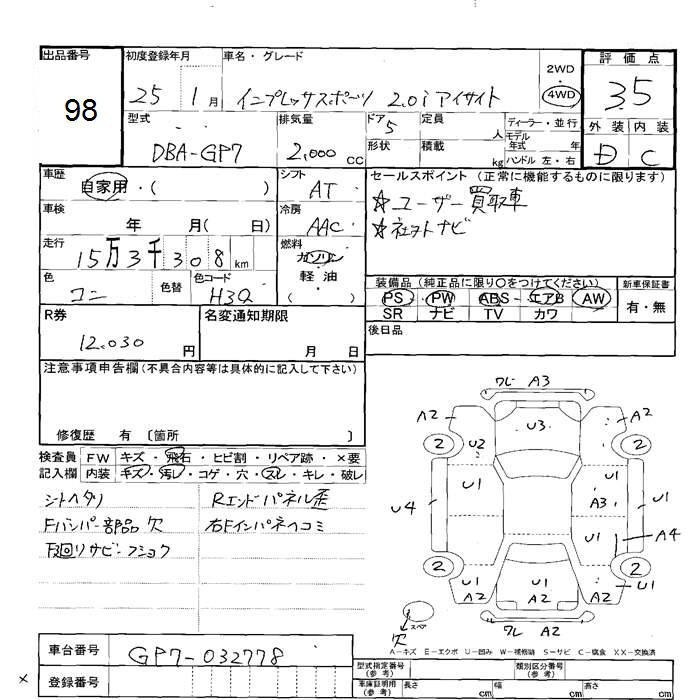 出品番号
98
初度登録年月
25 1月
車名・グレード
インプレッサスポーツ 2.0i アイサイト
2WD
・
4WD
評価点
3.5
外装 内装
D C
型式
DBA-GP7
排気量
2,000 cc
ドア 5
形状
定員 人
積載 kg
ディーラー・並行
モデル年式 年
ハンドル 左・右
車歴
自家用・( )
シフト
AT
セールスポイント (正常に機能するものに限ります)
☆ユーザー買取車
☆社外ナビ
車検
年 月( 日)
冷房
AAC
走行
15万3千308km
燃料
ガソリン
・
軽油
( )
色
コン
色替
色コード
H3Q
装備品 (純正品に限り○をつけてください)
PS PW ABS エアB AW
SR ナビ TV カワ
新車保証書
有・無
R券
12,030 円
名変通知期限
月 日
後日品
注意事項申告欄(不具合内容等は具体的に記入して下さい)
修復歴 有 〔箇所 〕
検査員
記入欄
FW キズ・飛石・ヒビ割・リペア跡・×要
内装 キズ・汚レ・コゲ・穴・スレ・キレ・破レ
シートヘタリ
Fバンパー部品欠
下廻リサビ・フショク
Rエンドパネル歪
右Fインパネヘコミ
ワレ A3
A2 U3 A2
2 U2 2
U1 U1
U4 A3 U1
U1 U1 A4
2 2
U1 U1 U1 U1
A2 A2 A2
ワレ A2
スペア
欠
A-キズ E-エクボ U-凹み W-補修跡 S-サビ C-腐食 XX-交換済
車台番号
GP7-032778
登録番号
型式指定番号
(参考)
類別区分番号
(参考)
車庫証明用
(参考)
長さ cm 幅 cm 高さ cm
×